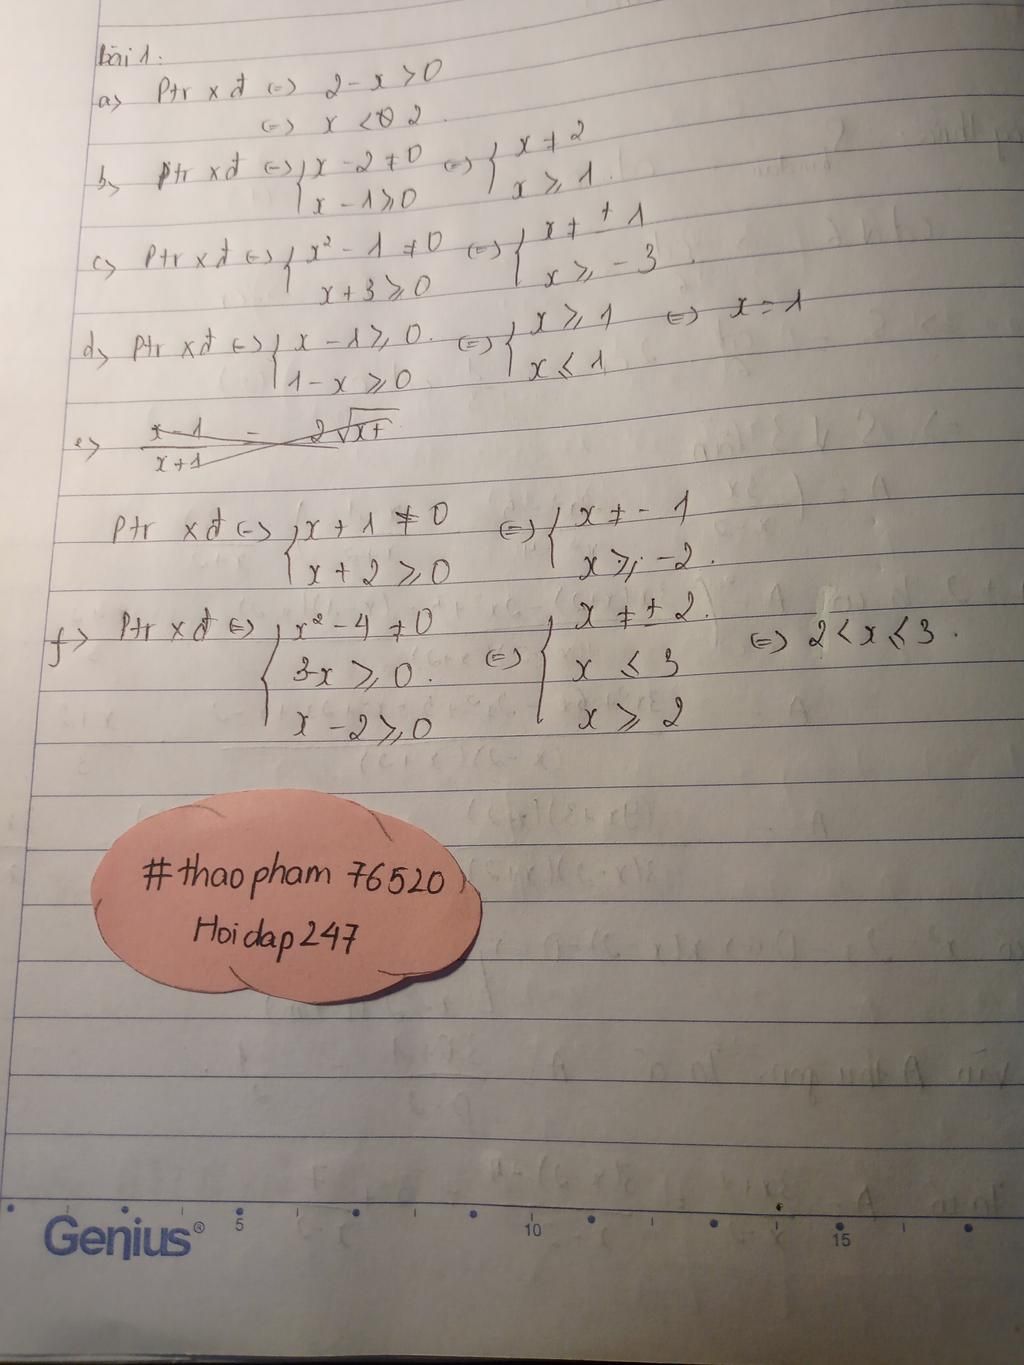 bài 1.
a> Ptr xđ <=> 2 - x > 0
<=> x < 2.
b> Ptr xđ <=> { x - 2 ≠ 0 <=> { x ≠ 2
x - 1 ≥ 0 x ≥ 1.
c> Ptr xđ <=> { x² - 1 ≠ 0 <=> { x ≠ ± 1
x + 3 ≥ 0 x ≥ - 3.
d> Ptr xđ <=> { x - 1 ≥ 0. <=> { x ≥ 1 <=> x = 1
1 - x ≥ 0 x ≤ 1
e>
Ptr xđ <=> { x + 1 ≠ 0 <=> { x ≠ - 1
x + 2 ≥ 0 x ≥ - 2.
f> Ptr xđ <=> { x² - 4 ≠ 0 <=> { x ≠ ± 2. <=> 2 < x ≤ 3.
3-x ≥ 0. x ≤ 3
x - 2 ≥ 0 x ≥ 2
#thaopham 76520
Hoidap247
Genius® 5 10 15